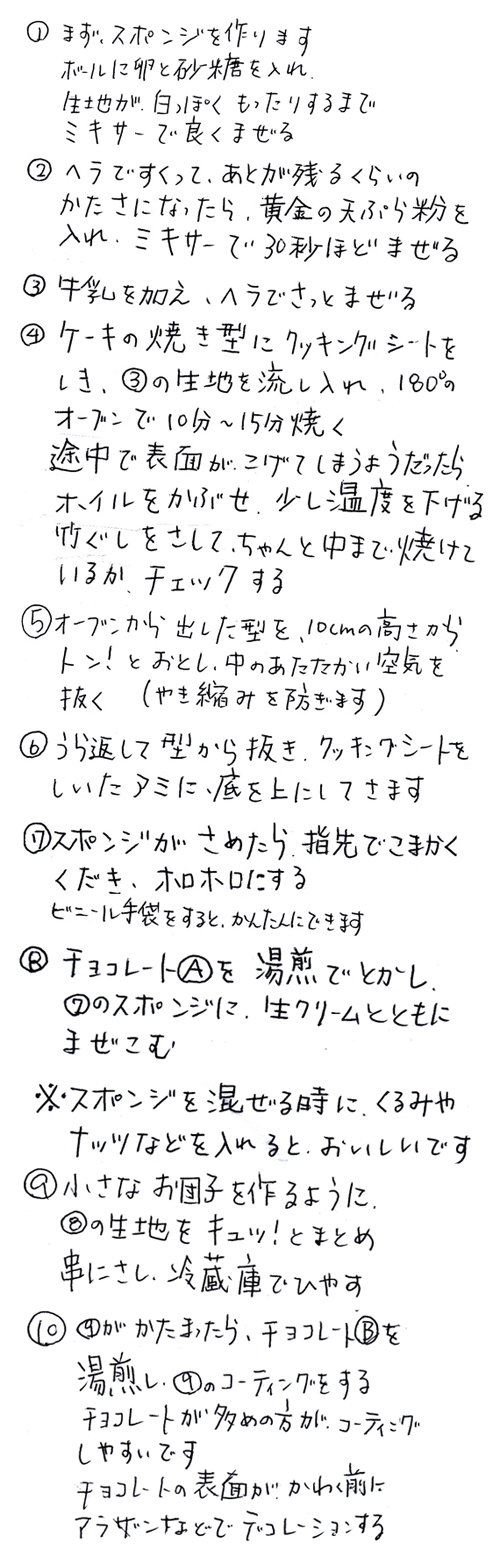 ① まず、スポンジを作ります
ボールに卵と砂糖を入れ、
生地が、白っぽく もったりするまで
ミキサーで良くまぜる
② ヘラですくって、あとが残るくらいの
かたさになったら、黄金の天ぷら粉を
入れ、ミキサーで30秒ほどまぜる
③ 牛乳を加え、ヘラでさっとまぜる
④ ケーキの焼き型にクッキングシートを
しき、③の生地を流し入れ、180°の
オーブンで10分~15分焼く
途中で表面が、こげてしまうようだったら
ホイルをかぶせ、少し温度を下げる
竹ぐしをさして、ちゃんと中まで焼けて
いるか、チェックする
⑤ オーブンから出した型を、10cmの高さから
トン!とおとし、中のあたたかい空気を
抜く (やき縮みを防ぎます)
⑥ うら返して型から抜き、クッキングシートを
しいたアミに、底を上にしてさます
⑦ スポンジがさめたら、指先でこまかく
くだき、ホロホロにする
ビニール手袋をすると、かんたんにできます
⑧ チョコレートⒶを湯煎でとかし、
⑦のスポンジに、生クリームとともに
まぜこむ
※スポンジを混ぜる時に、くるみや
ナッツなどを入れると、おいしいです
⑨ 小さなお団子を作るように、
⑧の生地をキュッ!とまとめ
串にさし、冷蔵庫でひやす
⑩ ⑨がかたまったら、チョコレートⒷを
湯煎し、⑨のコーティングをする
チョコレートが多めの方が、コーティング
しやすいです
チョコレートの表面が、かわく前に
アラザンなどでデコレーションする